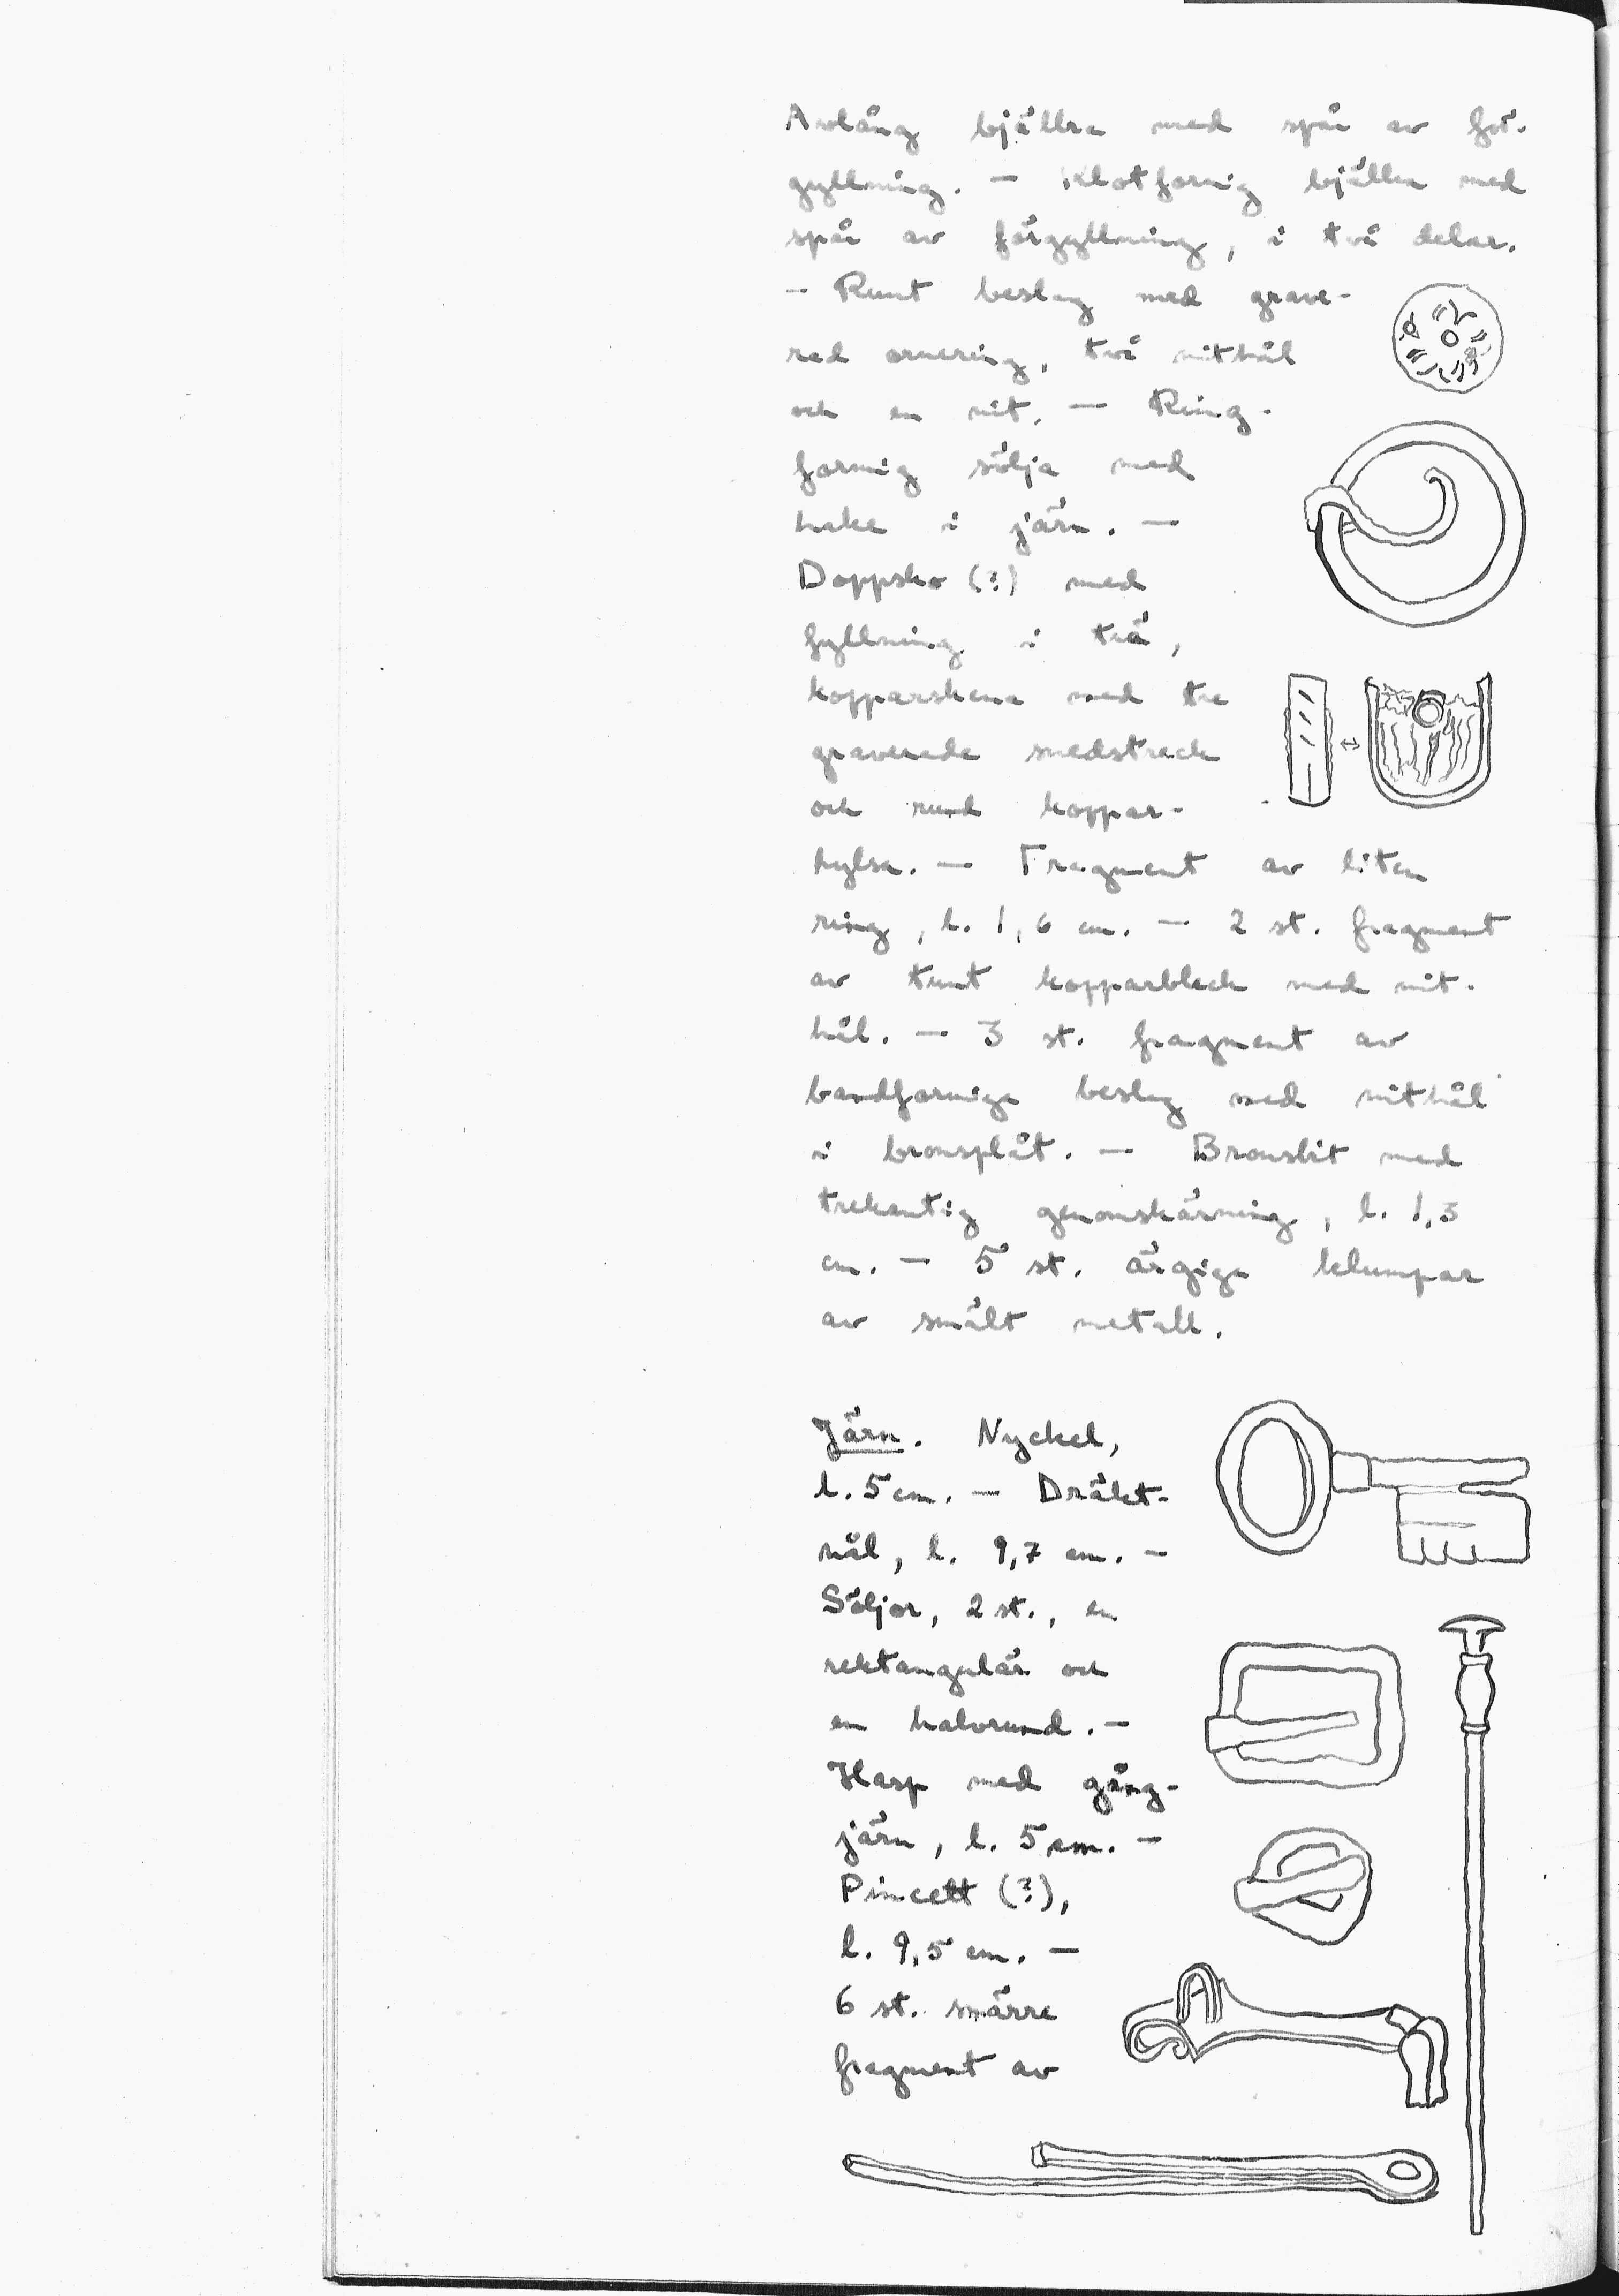 Avlång bjällra med spår av för-
gyllning. — Klotformig bjällra med
spår av förgyllning, i två delar.
— Runt beslag med grave-
rad ornering, två nithål
och en nit. — Ring-
formig sölja med
hake i järn. —
Doppsko (?) med
fyllning i trä,
kopparskena med tre
graverade snedstreck
och rund koppar-
hylsa. — Fragment av liten
ring, l. 1,6 cm. — 2 st. fragment
av tunt kopparbleck med nit-
hål. — 3 st. fragment av
bandformiga beslag med nithål
i bronsplåt. — Bronsbit med
trekantig genomskärning, l. 1,3
cm. — 5 st. ärgiga klumpar
av smält metall.
Järn. Nyckel,
l. 5 cm. — Dräkt-
nål, l. 9,7 cm. —
Söljor, 2 st., en
rektangulär och
en halvrund. —
Hasp med gång-
järn, l. 5 cm. —
Pincett (?),
l. 9,5 cm. —
6 st. smärre
fragment av